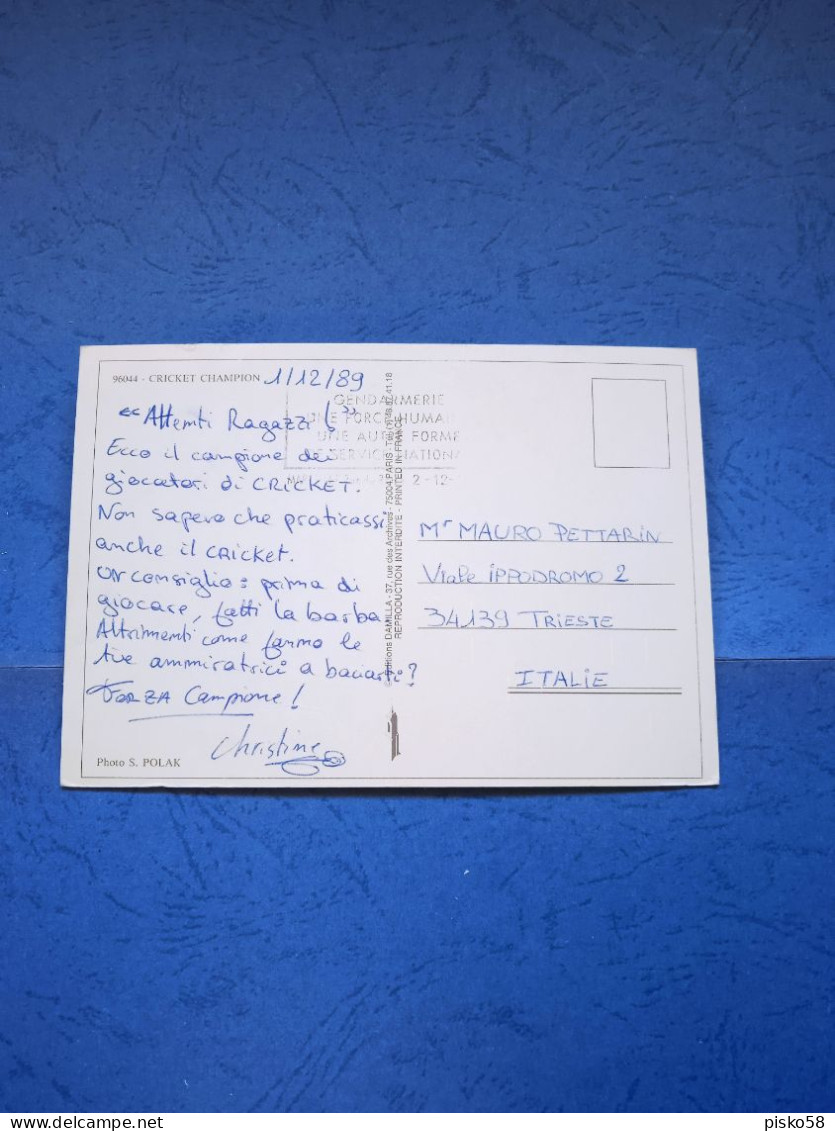 96044 - CRICKET CHAMPION 1/12/89
"Attenti Ragazzi!"
Ecco il campione dei
giocatori di CRICKET.
Non sapevo che praticassi
anche il CRICKET.
UN consiglio: prima di
giocare, fatti la barba
Altrimenti come fanno le
tue ammiratrici a baciarti?
FORZA Campione!
Christine
Photo S. POLAK
GENDARMERIE
UNE FORCE HUMAI
UNE AUTRE FORME
DE SERVICE NATIONA
2-12-
Editions DAMILLA - 37, rue des Archives - 75004 PARIS -
REPRODUCTION INTERDITE - PRINTED IN FRANCE
Mr MAURO PETTARIN
Viale iPPODROMO 2
34139 TRIESTE
ITALIE
delcampe.net
pisko58